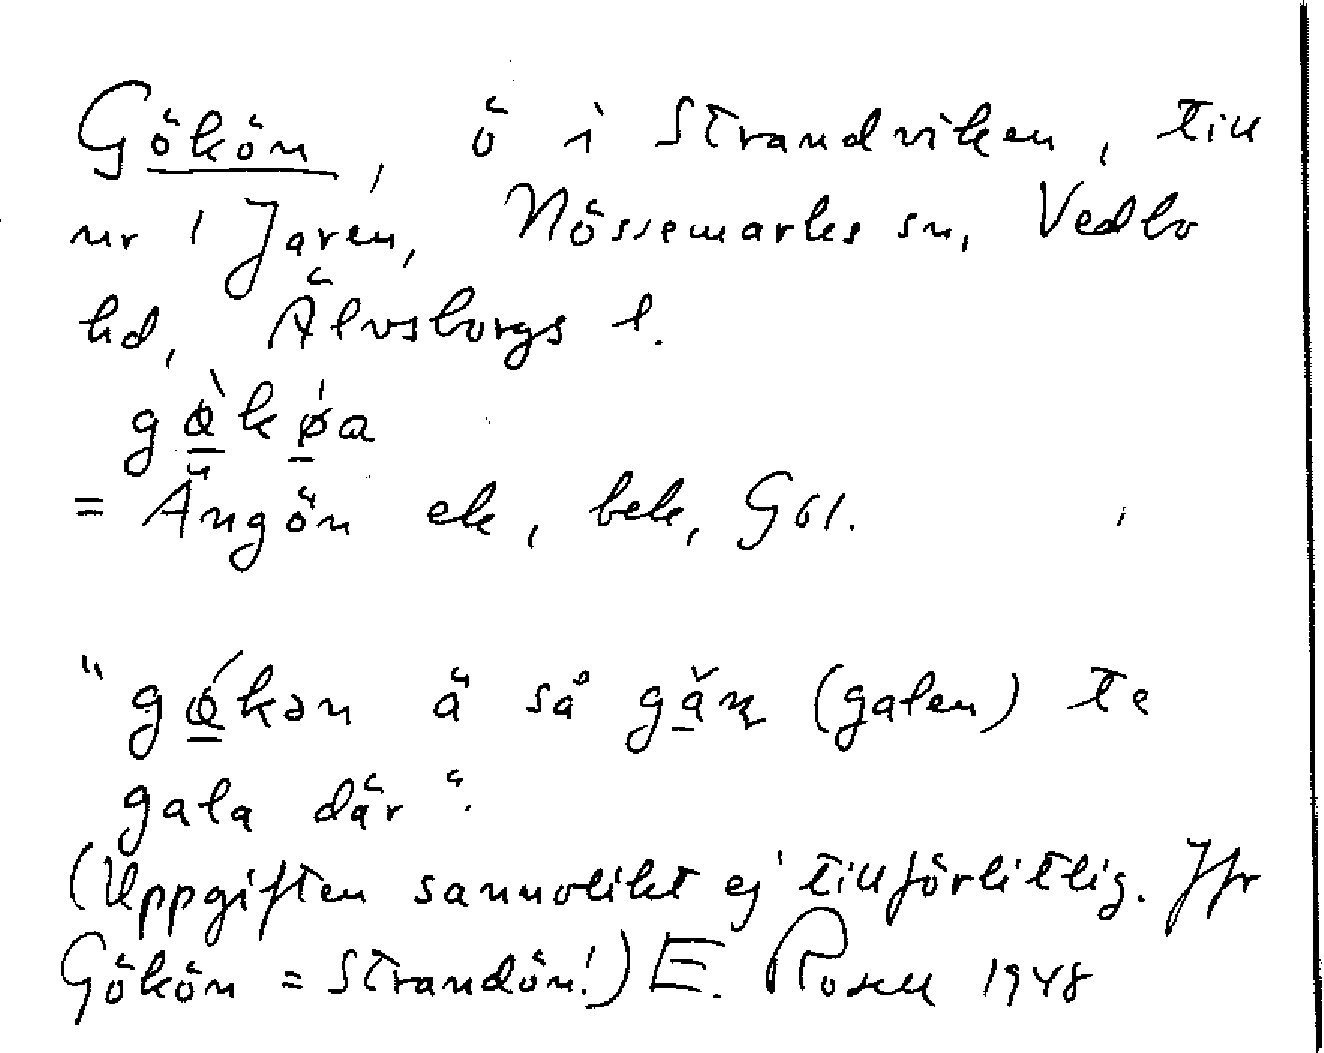 Gökön, ö i Strandviken, till
nr 1 Jaren, Nössemarks sn, Vedbo
hd, Älvsborgs l.
gø̀kǿa
= Ängön ek, bek, Gsl.
"gǿkən ä så gǎɳ (galen) te
gala där".
(Uppgiften sannolikt ej tillförlitlig. Jfr
Gökön = Strandön!) E. Rosell 1948